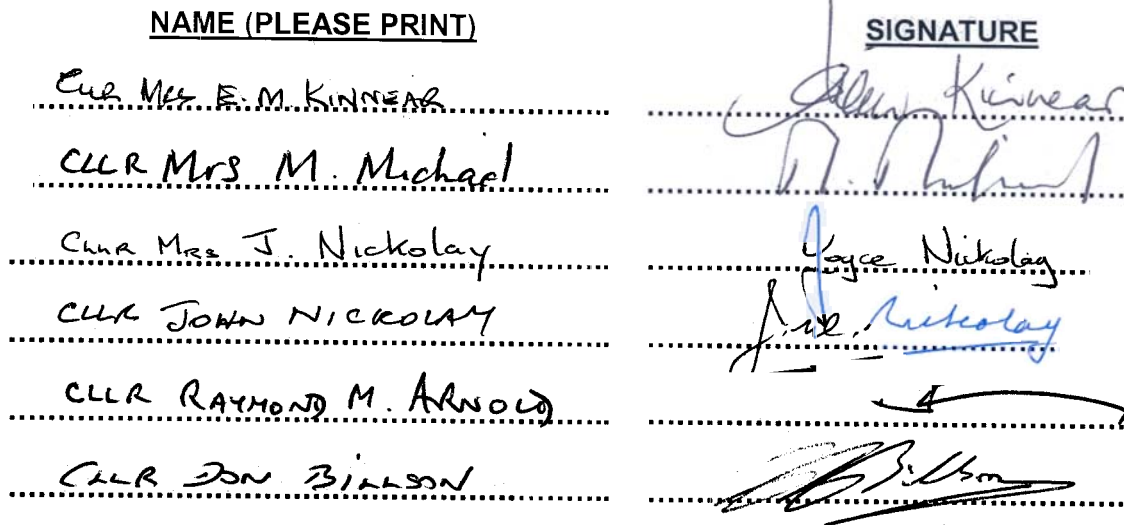 NAME (PLEASE PRINT) SIGNATURE
Cllr Mrs E. M. KINNEAR Kinnear
CLLR Mrs M. Michael M.
Cllr Mrs J. Nickolay Joyce Nickolay
CLLR JOHN NICKOLAY Nickolay
CLLR RAYMOND M. ARNOLD
CLLR DON BILLSON Billson